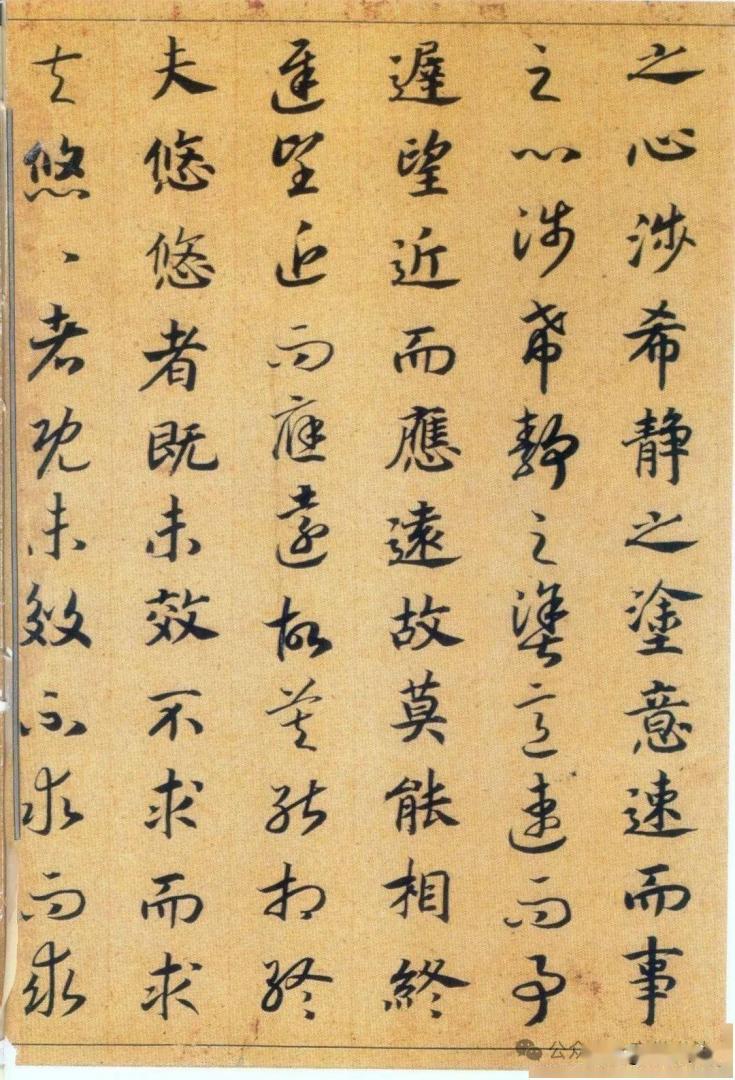 之心涉希静之塗意速而事
之心涉希静之塗意速而事
遲望近而應遠故莫能相終
遲望近而應遠故莫能相終
夫悠悠者既未效不求而求
夫悠〻者既未效不求而求
公众